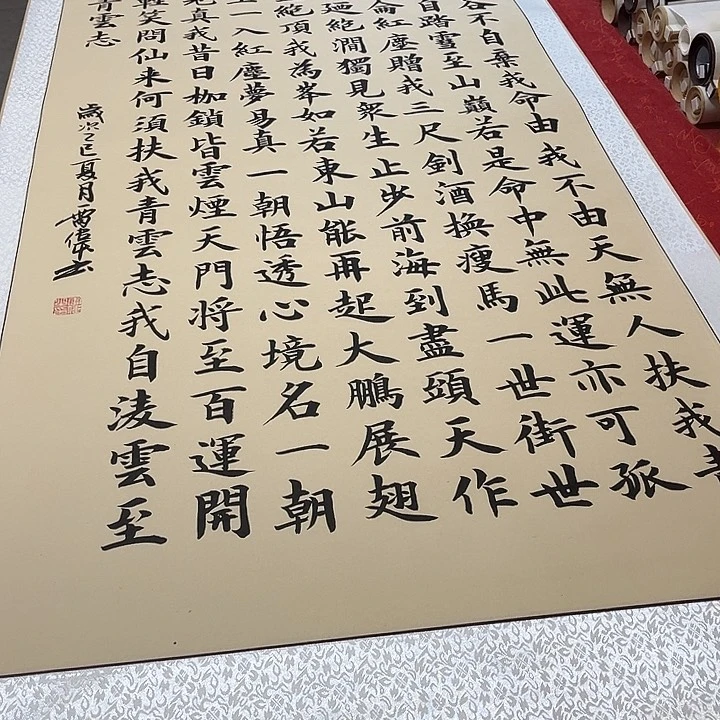 谷不自棄我命由我不由天無人扶我青
自踏雪至山巔若是命中無此運亦可孤
侖紅塵贈我三尺劍酒換瘦馬一世街世
迴絕澗獨見衆生止步前海到盡頭天作
絕頂我為峯如若東山能再起大鵬展翅
一入紅塵夢易真一朝悟透心境名一朝
真我昔日枷鎖皆雲煙天門将至百運開
輕笑問仙来何須扶我青雲志我自淩雲至
青雲志
歲次乙巳夏月